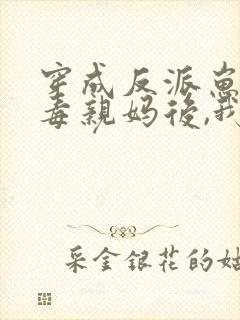 穿成反派崽
毒親妈後,我
采金銀花的姑